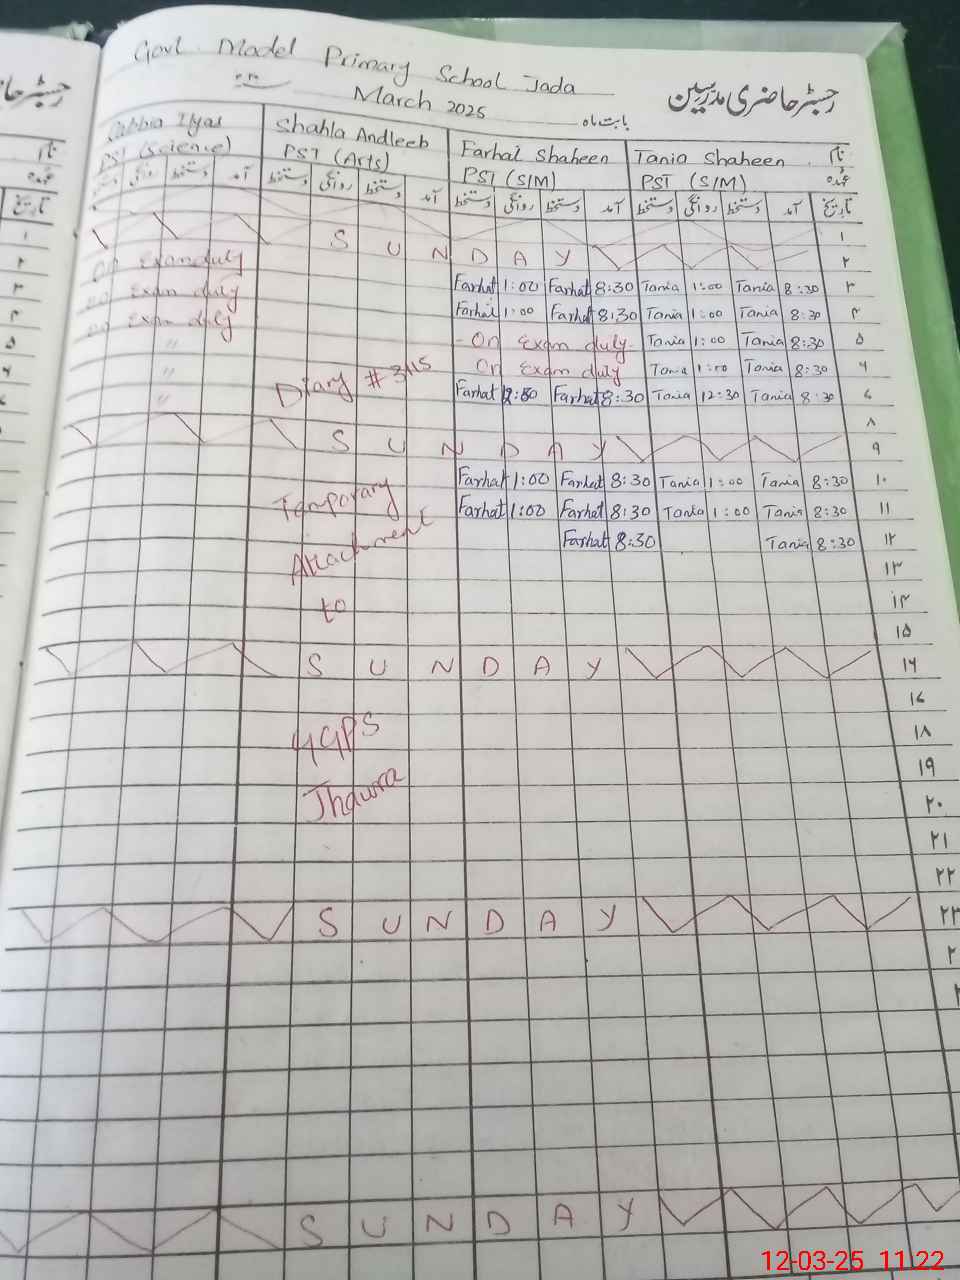 Govt Model Primary School Jada
March 2025
رجسٹر حاضری مدرسین
بابت ماہ
Ilyas Shahla Andleeb Farhat Shaheen Tania Shaheen نام
PST (Science) PST (Arts) PST (S/M) PST (S/M) عہدہ
دستخط روانگی دستخط آمد دستخط روانگی دستخط آمد دستخط روانگی دستخط آمد دستخط روانگی دستخط آمد تاریخ
۱
S U N D A Y ۲
On Exam duty Farhat 1:00 Farhat 8:30 Tania 1:00 Tania 8:30 ۳
on Exam duty Farhat 1:00 Farhat 8:30 Tania 1:00 Tania 8:30
on Exam duty - On Exam duty - Tania 1:00 Tania 8:30 ۵
" On Exam duty Tania 1:00 Tania 8:30
" Diary # 3115 Farhat Farhat 8:30 Tania 12:30 Tania 8:30
" ۸
S U N D A Y ۹
Farhat 1:00 Farhat 8:30 Tania 1:00 Tania 8:30 ۱۰
Temporary Farhat 1:00 Farhat 8:30 Tania 1:00 Tania 8:30 ۱۱
Attachment Farhat 8:30 Tania 8:30 ۱۲
۱۳
to ۱۴
۱۵
S U N D A Y ۱۶
۱۸
GGPS ۱۹
Jhawra ۲۰
۲۱
۲۲
S U N D A Y ۲۳
S U N D A Y
12-03-25 11:22